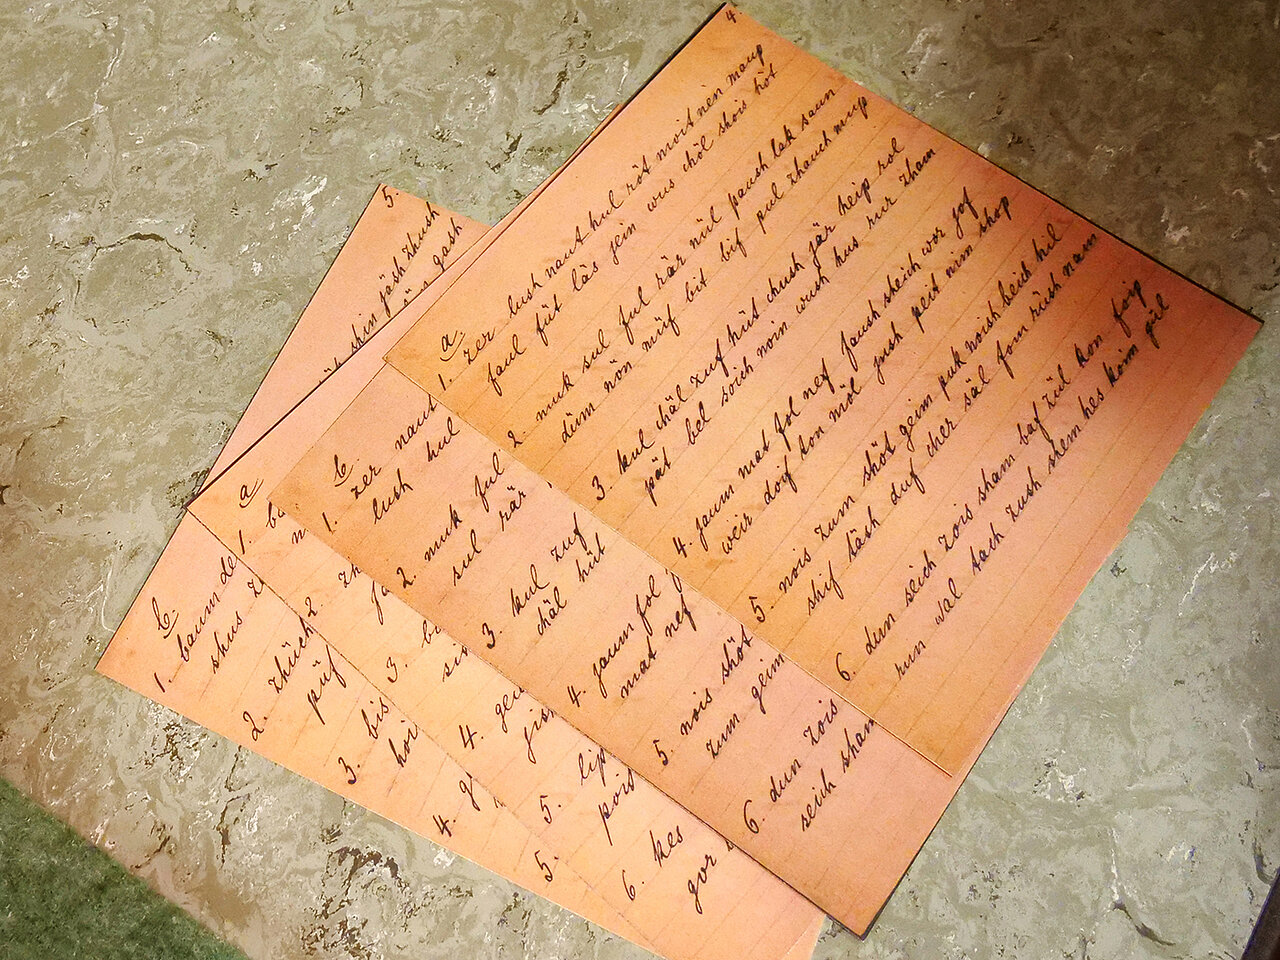 4.
a.
1. zer lush naut hul röt moit nen maup
faul füt läs jein wus chöl shois höt
2. muk sul ful rär nül paush lak saun
düm nön müf bit bif pul zhauch mup
3. kul chäl zuf hüt chush jär heip rol
pät bel soich noin wush hus rur zham
4. jaum mat fol nef faush sheich wor jof
weir doif ton möl jush peit nim shop
5. nois zum shöt geim puk noish heich hil
shif täch duf cher säl fom rüsh nam
6. dun seich zois sham baf zül kon foip
run wal tach zush shem hes keim pil
b
1. zer naut
lush hul
2. muk ful
sul rär
3. kul zuf
chäl hüt
4. jaum fol
mat nef
5. nois shöt
zum geim
6. dun zois
seich sham
5.
shin jäsh zhush
gash
a
1.
2.
3.
4.
5. lip
pois
6. kes
gor
b.
1. baum
shus
2. zhüch
püf
3. bis
4.
5.